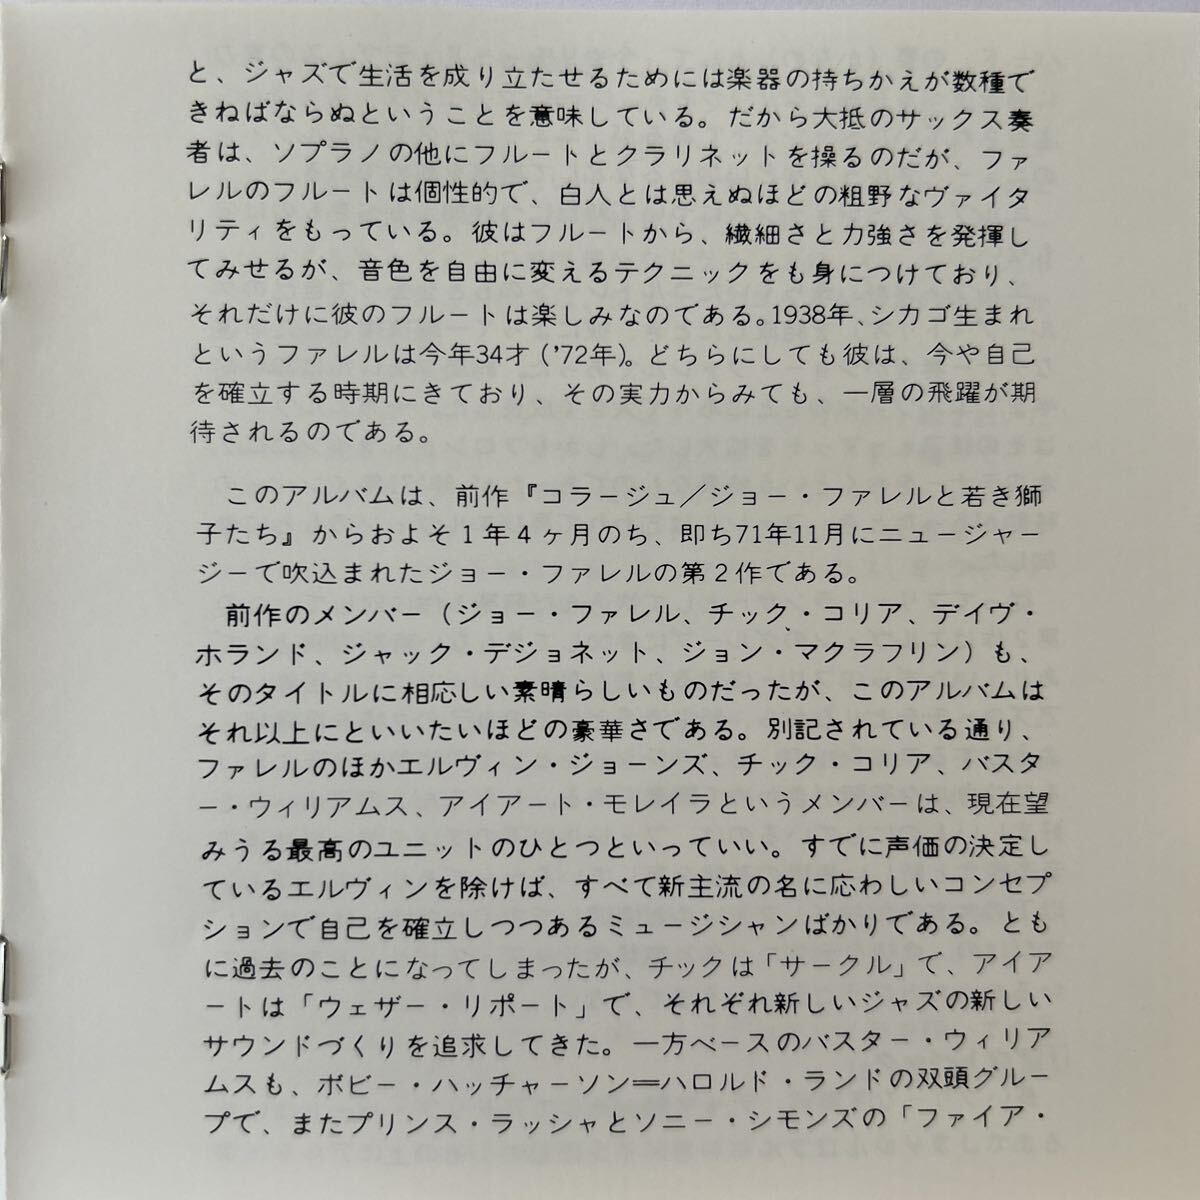 と、ジャズで生活を成り立たせるためには楽器の持ちかえが数種で
きねばならぬということを意味している。だから大抵のサックス奏
者は、ソプラノの他にフルートとクラリネットを操るのだが、ファ
レルのフルートは個性的で、白人とは思えぬほどの粗野なヴァイタ
リティをもっている。彼はフルートから、繊細さと力強さを発揮し
てみせるが、音色を自由に変えるテクニックをも身につけており、
それだけに彼のフルートは楽しみなのである。1938年、シカゴ生まれ
というファレルは今年34才（'72年）。どちらにしても彼は、今や自己
を確立する時期にきており、その実力からみても、一層の飛躍が期
待されるのである。
このアルバムは、前作『コラージュ／ジョー・ファレルと若き獅
子たち』からおよそ１年４ヶ月のち、即ち71年11月にニュージャー
ジーで吹込まれたジョー・ファレルの第２作である。
前作のメンバー（ジョー・ファレル、チック・コリア、デイヴ・
ホランド、ジャック・デジョネット、ジョン・マクラフリン）も、
そのタイトルに相応しい素晴らしいものだったが、このアルバムは
それ以上にといいたいほどの豪華さである。別記されている通り、
ファレルのほかエルヴィン・ジョーンズ、チック・コリア、バスタ
ー・ウィリアムス、アイアート・モレイラというメンバーは、現在望
みうる最高のユニットのひとつといっていい。すでに声価の決定し
ているエルヴィンを除けば、すべて新主流の名に応わしいコンセプ
ションで自己を確立しつつあるミュージシャンばかりである。とも
に過去のことになってしまったが、チックは「サークル」で、アイア
ートは「ウェザー・リポート」で、それぞれ新しいジャズの新しい
サウンドづくりを追求してきた。一方ベースのバスター・ウィリア
ムスも、ボビー・ハッチャーソン＝ハロルド・ランドの双頭グルー
プで、またプリンス・ラッシャとソニー・シモンズの「ファイア・